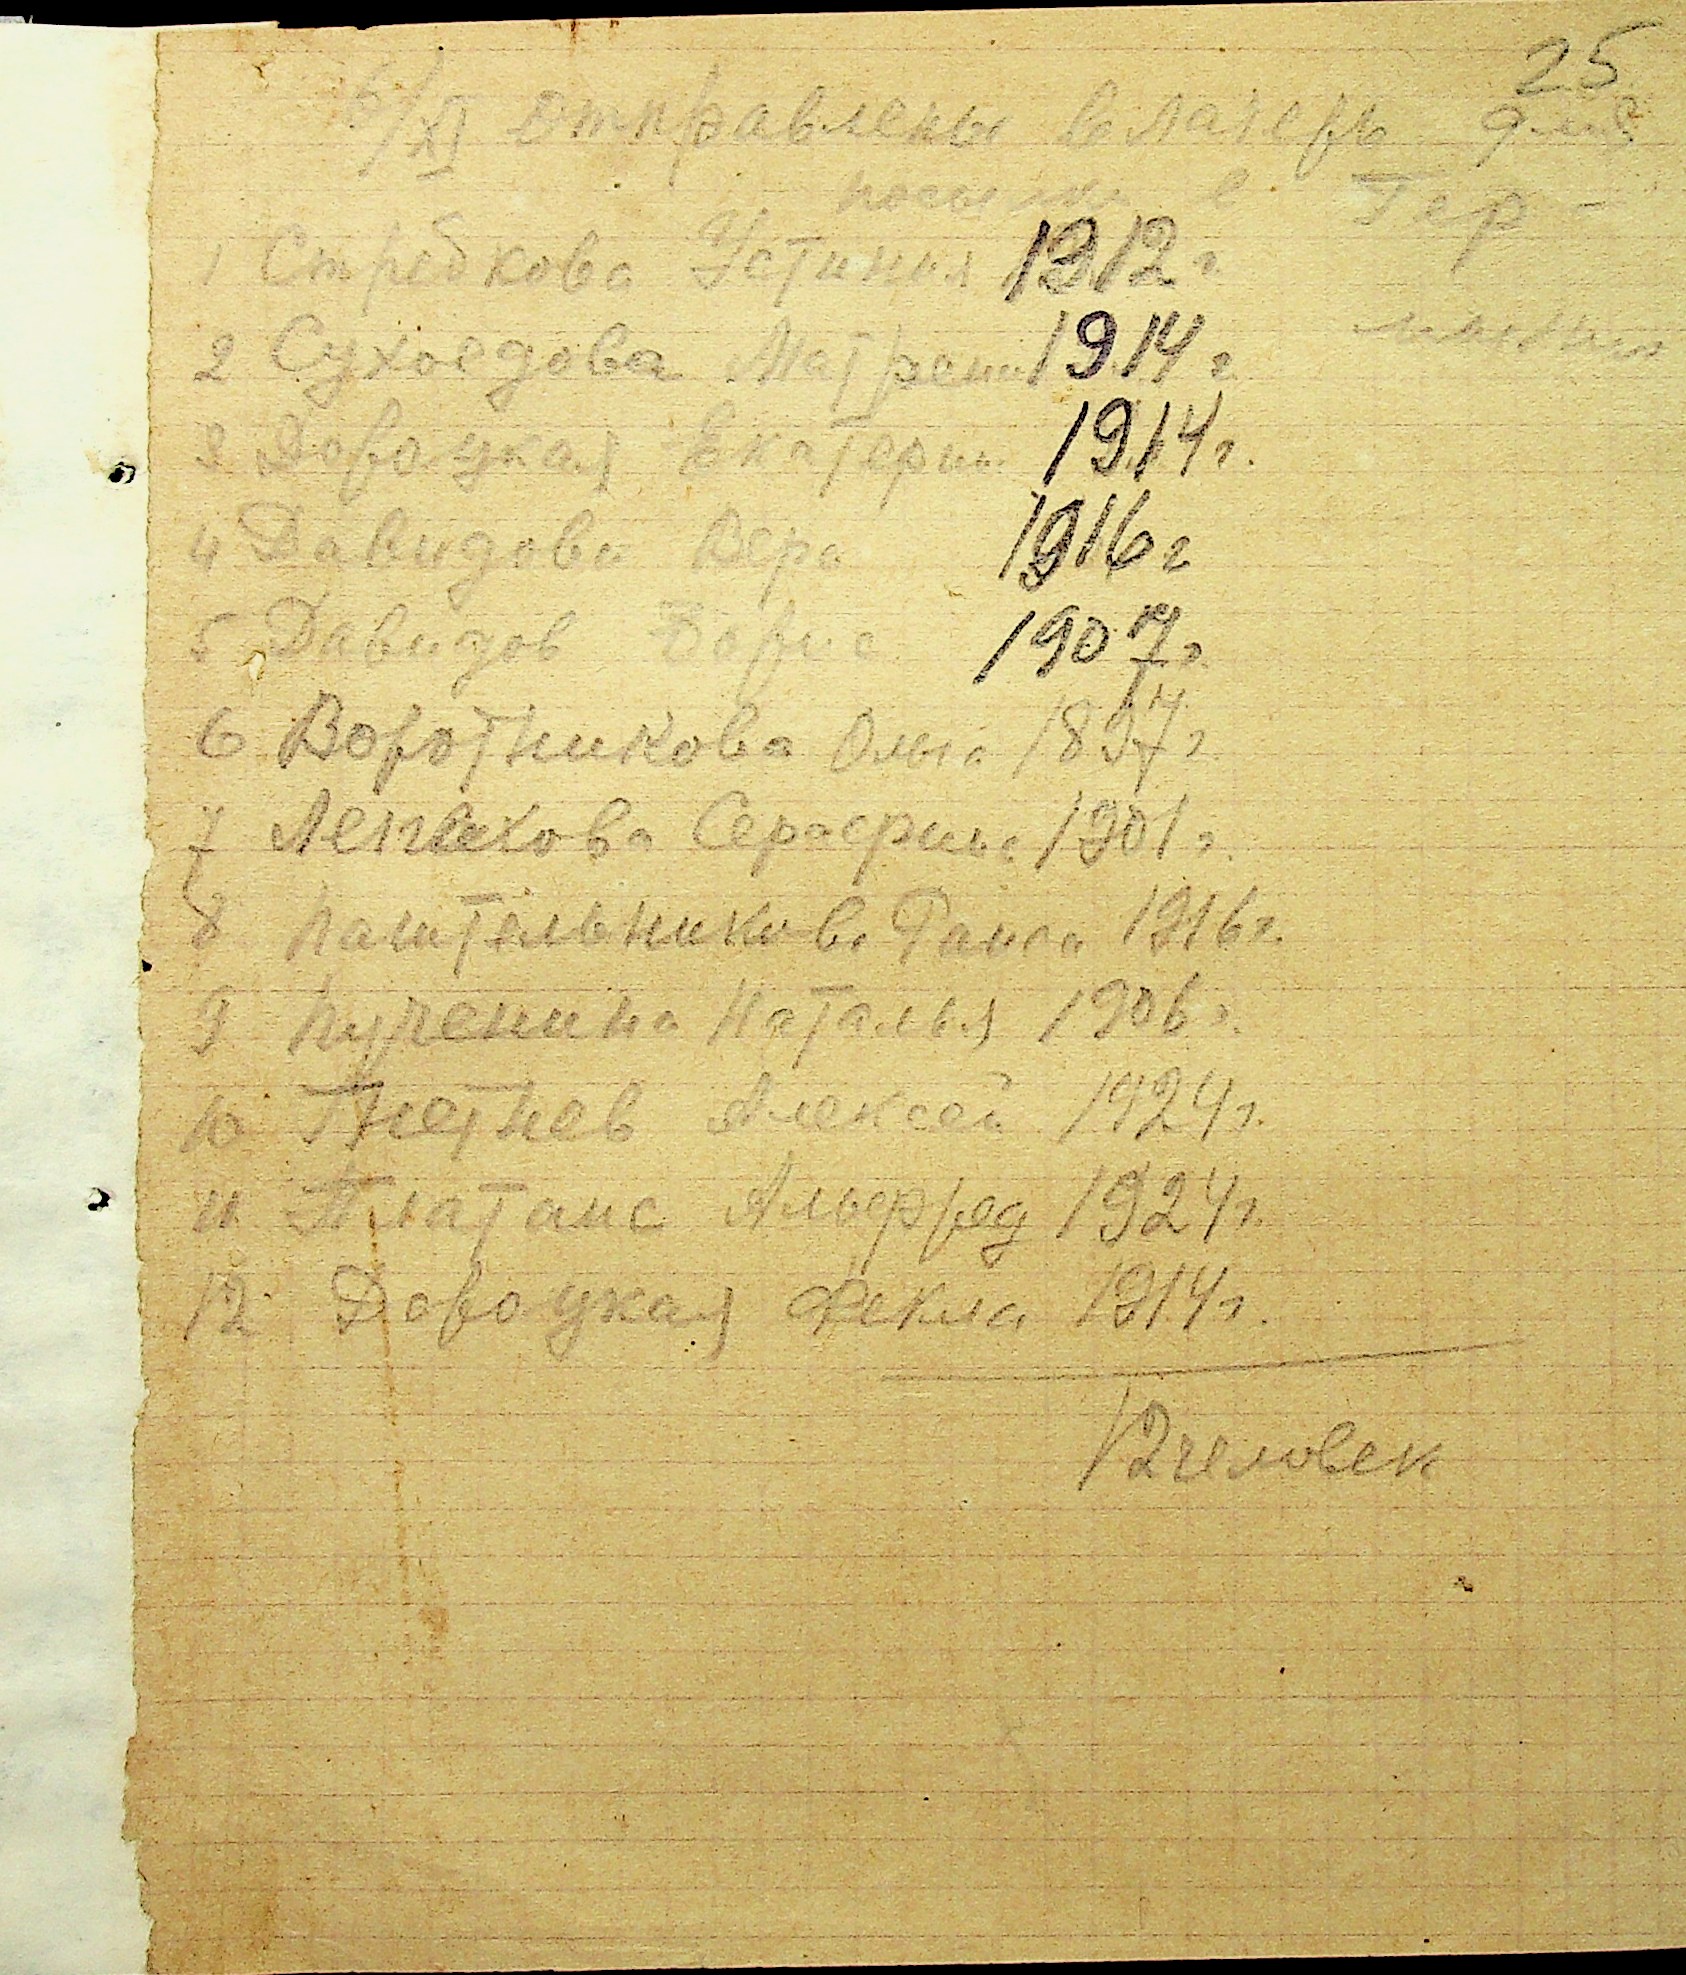 25
6/XI отправлены в лагерь для
посылки в Гер-
мании
1 Стребкова Устинья 1912 г
2 Сухоедова Матрена 1914 г
3 Дороцкая Екатерина 1914 г.
4 Давидова Вера 1916 г
5 Давидов Борис 1907 г.
6 Воротникова Ольга 1897 г
7 Серафима 1901 г.
8 Раиса 1916 г.
9 Пученина Наталья 1906 г.
10 Гнетнев Алексей 1924 г.
11 Платанс Альфред 1924 г.
12 Дороцкая Фекла 1914 г.
12 человек